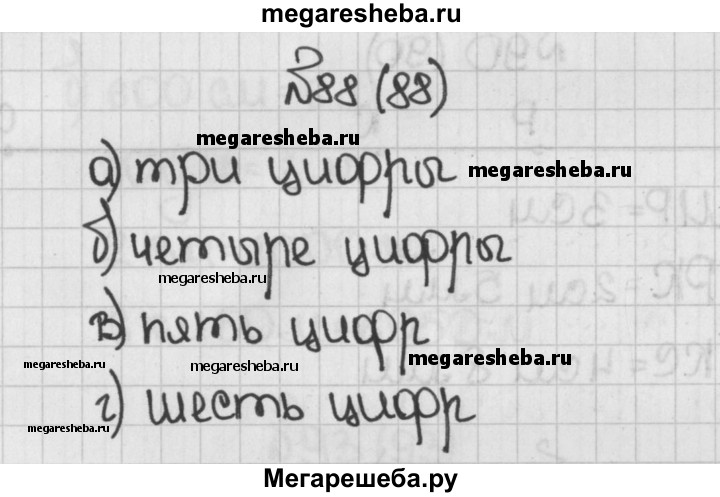 megaresheba.ru
№88 (88)
megaresheba.ru
а) три цифры
megaresheba.ru
б) четыре цифры
megaresheba.ru
в) пять цифр
megaresheba.ru
megaresheba.ru
megaresheba.ru
г) шесть цифр
megaresheba.ru
Мегарешеба.ру